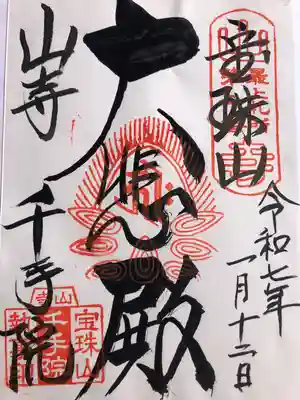 宝珠山
令和七年
一月十二日
大悲殿
山寺
千手院
山寺
宝珠山
千手院